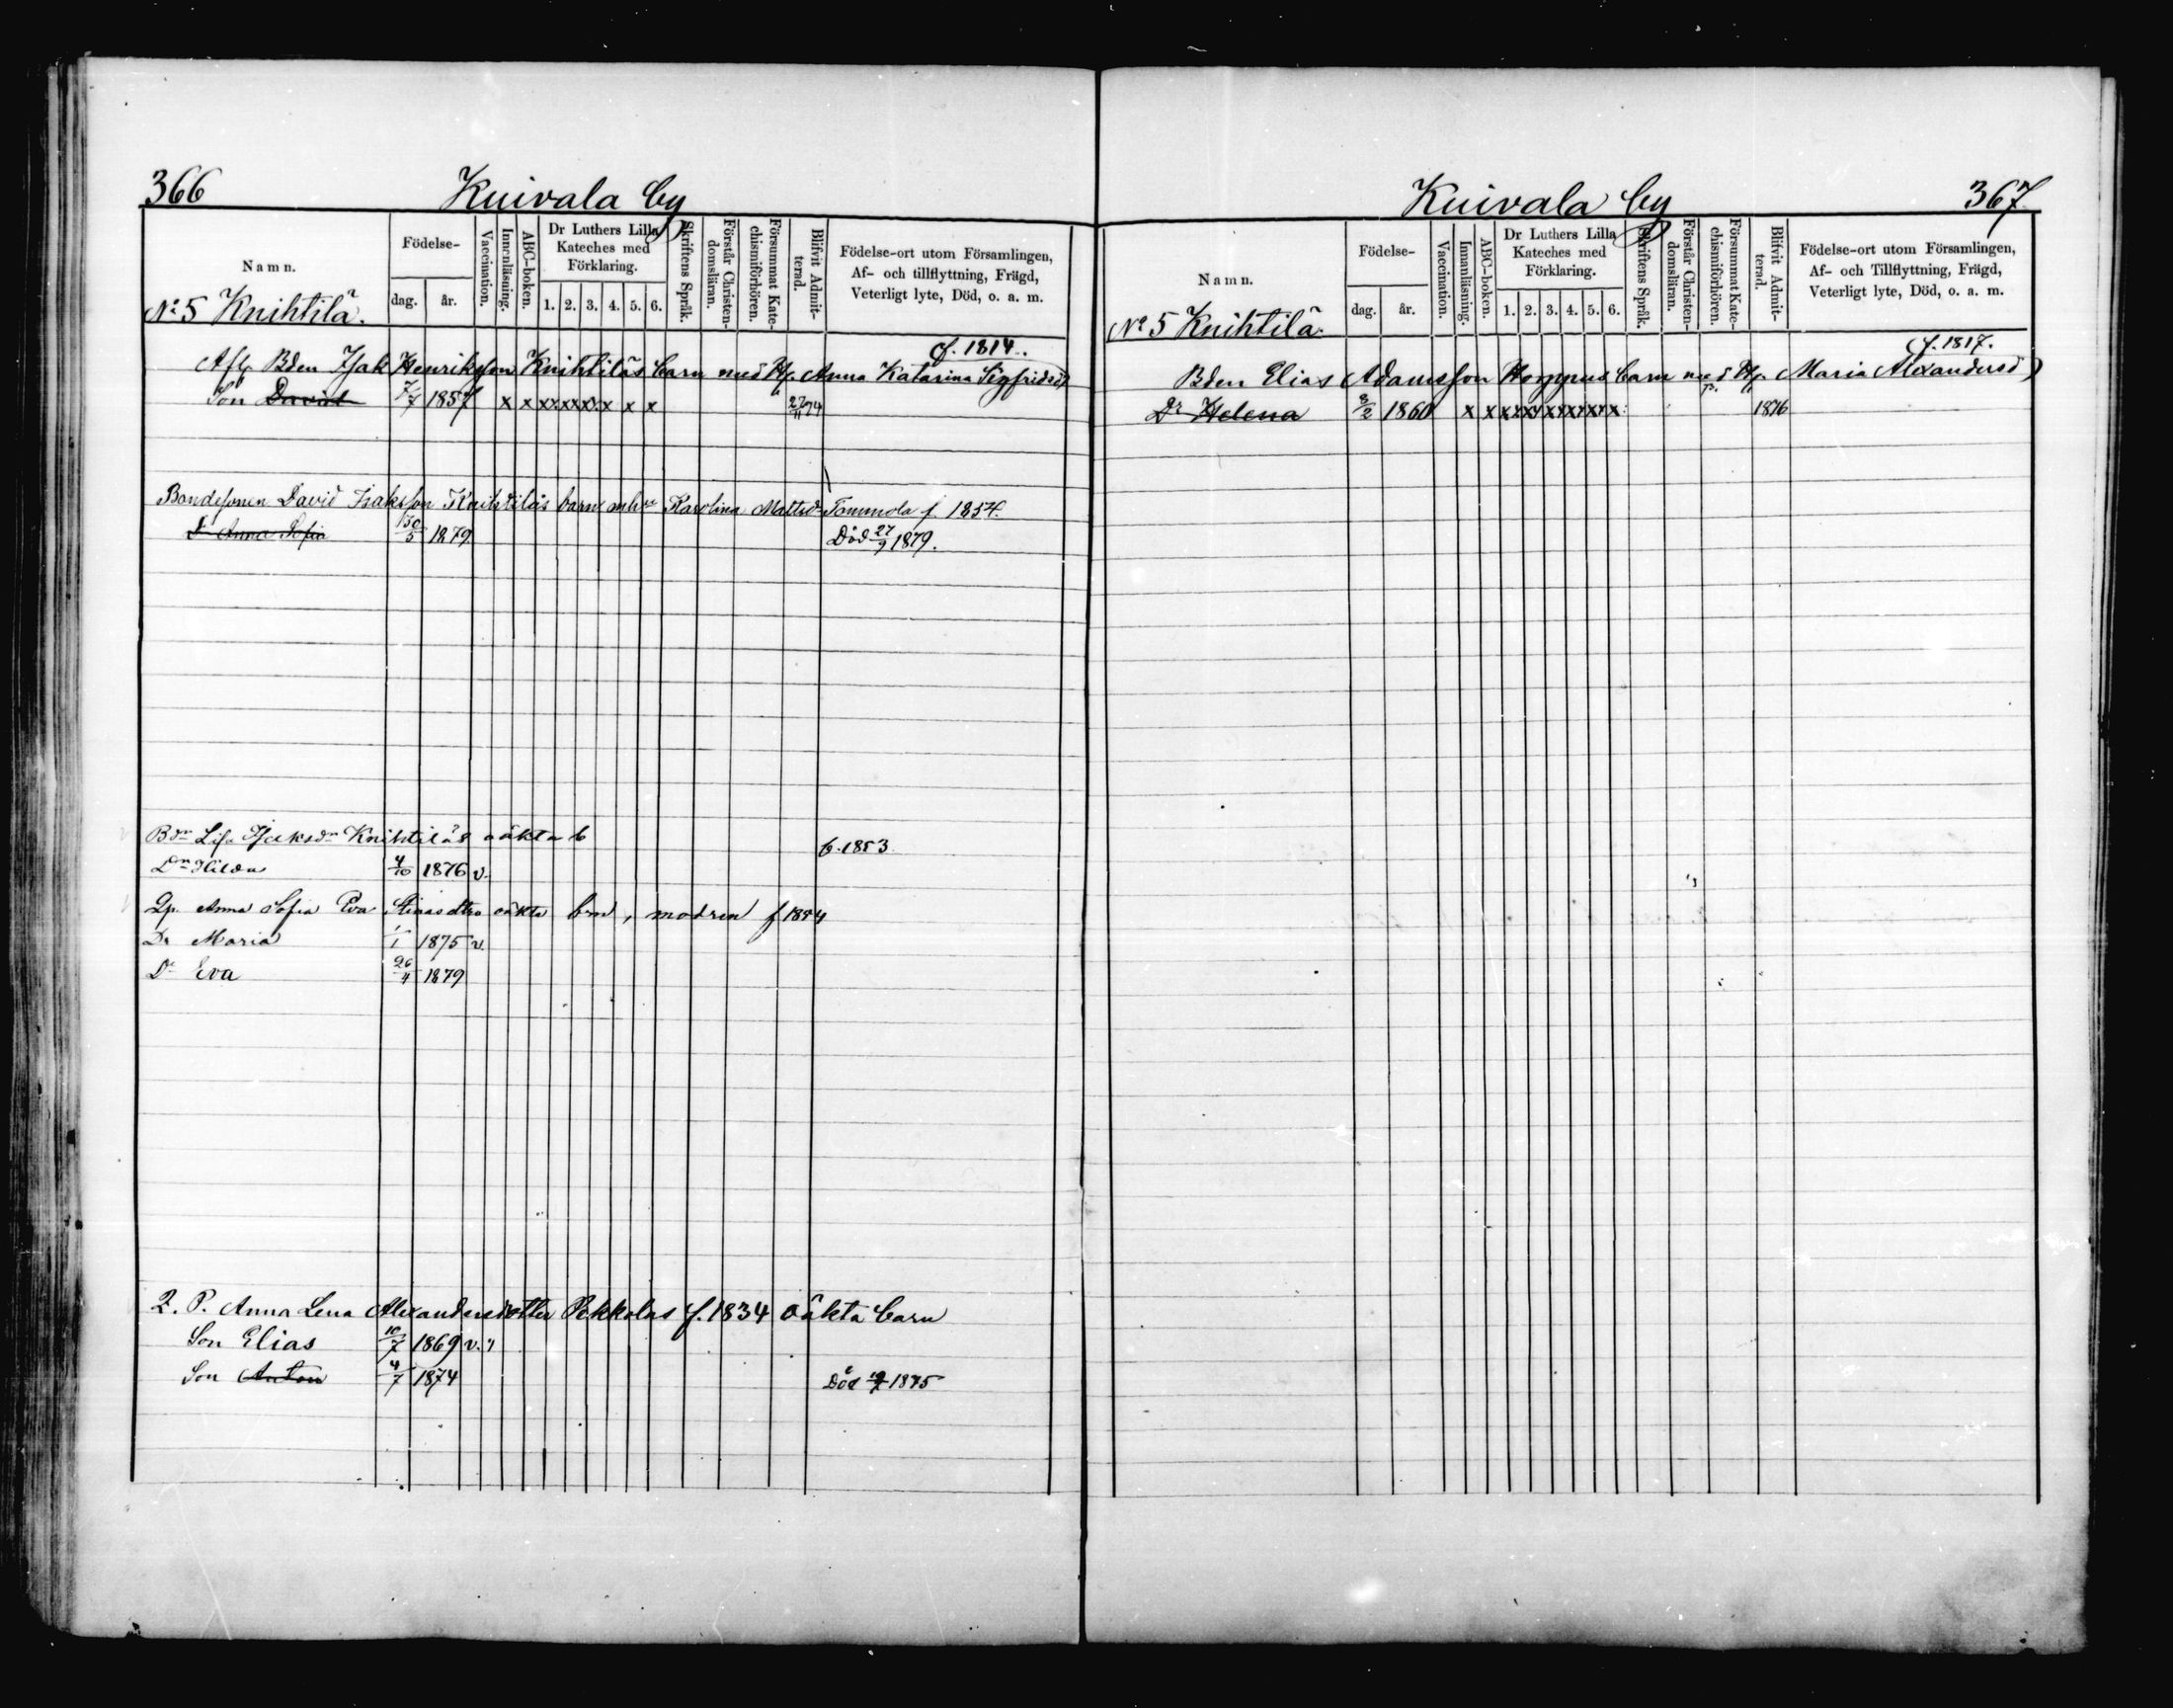 366 Kuivala by
Namn. Födelse- dag. år. Vaccination. Innenläsning. ABC-boken. Dr Luthers Lilla Kateches med Förklaring. 1. 2. 3. 4. 5. 6. Skriftens Språk. Förstår Christendomsläran. Försummat Katechismiförhören. Blifvit Admitterad. Födelse-ort utom Församlingen, Af- och tillflyttning, Frägd, Veterligt lyte, Död, o. a. m.
No 5 Knihtilä.
f. 1814.
Afl. Bden Isak Henriksson Knihtiläs barn med H. Anna Katarina Sigfridsd)
Son David 7/7 1857 x x x x x x x x x 27/11 74
Bondesonen David Isaksson Knihtiläs barn mhu Karolina Mattsdr Tommola f. 1854.
Dr Anna Sofia 30/5 1879 Död 27/9 1879.
Bdr Lisa Isaksdr Knihtiläs oäkta b f. 1853
Dr Hilda 4/10 1876 v.
Qp. Anna Sofia Eva Stinas dtrs oäkta brn, modren f 1854
Dr Maria 1/1 1875 v.
Dr Eva 26/4 1879
Q. P. Anna Lena Alexandersdotter Pekkolas f. 1834 oäkta barn
Son Elias 10/7 1869 v. "
Son Anton 4/7 1874 Död 1875
Kuivala by 367
Namn. Födelse- dag. år. Vaccination. Innanläsning. ABC-boken. Dr Luthers Lilla Kateches med Förklaring. 1. 2. 3. 4. 5. 6. Skriftens Språk. Förstår Christendomsläran. Försummat Katechismiförhören. Blifvit Admitterad. Födelse-ort utom Församlingen, Af- och Tillflyttning, Frägd, Veterligt lyte, Död, o. a. m.
No 5 Knihtilä.
f. 1817.
Bden Elias Adamsson Homppus barn med H. Maria Alexandersd)
Dr Helena 8/2 1860 x x x x x x x x x 1876